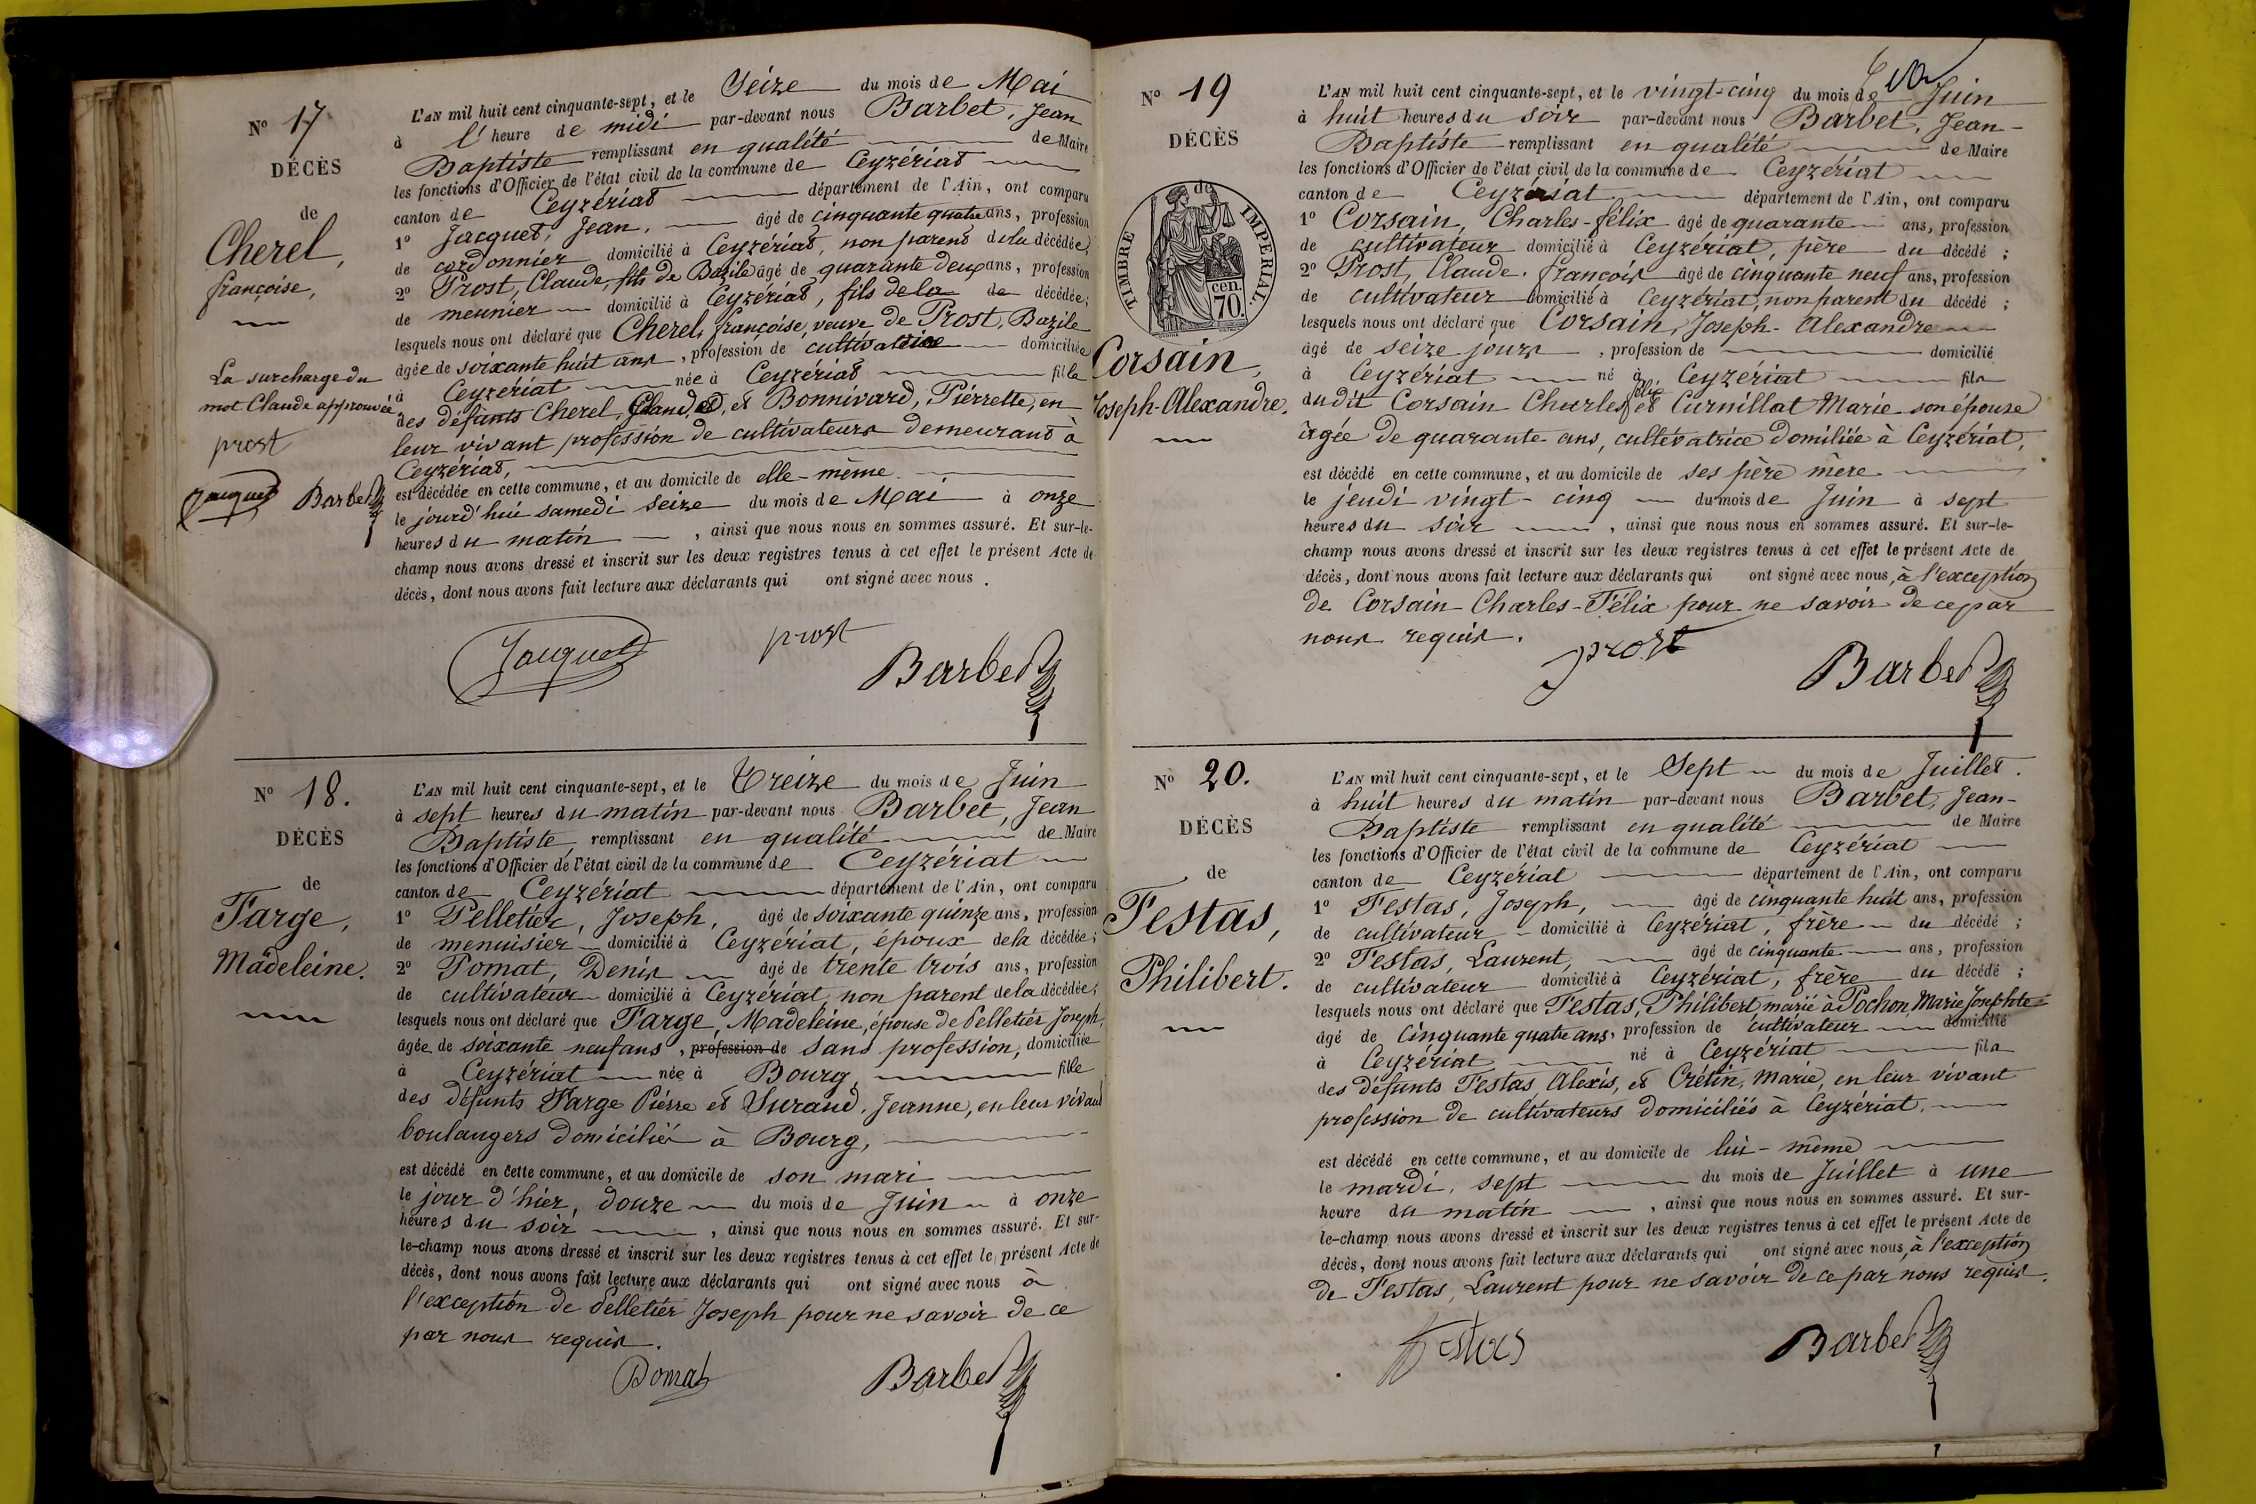 N° 17
DÉCÈS
de
Cherel,
françoise,
La surcharge du
mot Claude approuvée
prost
Jacquet Barbet
L'AN mil huit cent cinquante-sept, et le Seize du mois de Mai
à l'heure de midi par-devant nous Barbet, Jean
Baptiste remplissant en qualité de Maire
les fonctions d'Officier de l'état civil de la commune de Ceyzériat
canton de Ceyzériat département de l'Ain, ont comparu
1° Jacquet, Jean, âgé de cinquante quatre ans, profession
de cordonnier domicilié à Ceyzériat, non parent de la décédée;
2° Prost, Claude, fils de Bazile âgé de quarante deux ans, profession
de meunier domicilié à Ceyzériat, fils de la de décédée;
lesquels nous ont déclaré que Cherel, françoise, veuve de Prost, Bazile
âgée de soixante huit ans, profession de cultivatrice domiciliée
à Ceyzériat née à Ceyzériat fille
des défunts Cherel, Claude, et Bonnivard, Pierrette, en
leur vivant profession de cultivateurs demeurant à
Ceyzériat,
est décédée en cette commune, et au domicile de elle-même
le jourd'hui samedi seize du mois de Mai à onze
heures du matin, ainsi que nous nous en sommes assuré. Et sur-le-
champ nous avons dressé et inscrit sur les deux registres tenus à cet effet le présent Acte de
décès, dont nous avons fait lecture aux déclarants qui ont signé avec nous.
Jacquet prost Barbet
N° 18.
DÉCÈS
de
Farge,
Madeleine.
L'AN mil huit cent cinquante-sept, et le Treize du mois de Juin
à sept heures du matin par-devant nous Barbet, Jean
Baptiste, remplissant en qualité de Maire
les fonctions d'Officier de l'état civil de la commune de Ceyzériat
canton de Ceyzériat département de l'Ain, ont comparu
1° Pelletier, Joseph, âgé de soixante quinze ans, profession
de menuisier domicilié à Ceyzériat, époux de la décédée;
2° Pomat, Denis âgé de trente trois ans, profession
de cultivateur domicilié à Ceyzériat, non parent de la décédée;
lesquels nous ont déclaré que Farge, Madeleine, épouse de Pelletier Joseph,
âgée de soixante neuf ans, profession de sans profession, domiciliée
à Ceyzériat née à Bourg, fille
des défunts Farge Pierre et Surand, Jeanne, en leur vivant
boulangers domiciliés à Bourg,
est décédé en cette commune, et au domicile de son mari
le jour d'hier, douze du mois de Juin à onze
heures du soir, ainsi que nous nous en sommes assuré. Et sur-
le-champ nous avons dressé et inscrit sur les deux registres tenus à cet effet le présent Acte de
décès, dont nous avons fait lecture aux déclarants qui ont signé avec nous à
l'exception de Pelletier Joseph pour ne savoir de ce
par nous requis.
Pomat Barbet
N° 19
DÉCÈS
de
TIMBRE IMPÉRIAL.
70 cen.
Corsain,
Joseph-Alexandre.
L'AN mil huit cent cinquante-sept, et le vingt-cinq du mois de Juin
à huit heures du soir par-devant nous Barbet, Jean-
Baptiste remplissant en qualité de Maire
les fonctions d'Officier de l'état civil de la commune de Ceyzériat
canton de Ceyzériat département de l'Ain, ont comparu
1° Corsain, Charles-félix âgé de quarante ans, profession
de cultivateur domicilié à Ceyzériat, père du décédé;
2° Prost, Claude-françois âgé de cinquante neuf ans, profession
de cultivateur domicilié à Ceyzériat, non parent du décédé;
lesquels nous ont déclaré que Corsain, Joseph-Alexandre
âgé de seize jours, profession de domicilié
à Ceyzériat né à Ceyzériat fils
dudit Corsain Charles félix et Curnillat Marie son épouse
âgée de quarante ans, cultivatrice domiliée à Ceyzériat,
est décédé en cette commune, et au domicile de ses père mère
le jeudi vingt-cinq du mois de Juin à sept
heures du soir, ainsi que nous nous en sommes assuré. Et sur-le-
champ nous avons dressé et inscrit sur les deux registres tenus à cet effet le présent Acte de
décès, dont nous avons fait lecture aux déclarants qui ont signé avec nous, à l'exception
de Corsain Charles-Félix pour ne savoir de ce par
nous requis.
prost Barbet
N° 20.
DÉCÈS
de
Festas,
Philibert.
L'AN mil huit cent cinquante-sept, et le Sept du mois de Juillet.
à huit heures du matin par-devant nous Barbet, Jean-
Baptiste remplissant en qualité de Maire
les fonctions d'Officier de l'état civil de la commune de Ceyzériat
canton de Ceyzériat département de l'Ain, ont comparu
1° Festas, Joseph, âgé de cinquante huit ans, profession
de cultivateur domicilié à Ceyzériat, frère du décédé;
2° Festas, Laurent, âgé de cinquante ans, profession
de cultivateur domicilié à Ceyzériat, frère du décédé;
lesquels nous ont déclaré que Festas, Philibert marié à Pochon, Marie Josephte
âgé de Cinquante quatre ans, profession de cultivateur domicilié
à Ceyzériat né à Ceyzériat fils
des défunts Festas, Alexis, et Crétin, Marie, en leur vivant
profession de cultivateurs domiciliés à Ceyzériat.
est décédé en cette commune, et au domicile de lui-même
le mardi, sept du mois de Juillet à une
heure du matin, ainsi que nous nous en sommes assuré. Et sur-
le-champ nous avons dressé et inscrit sur les deux registres tenus à cet effet le présent Acte de
décès, dont nous avons fait lecture aux déclarants qui ont signé avec nous, à l'exception
de Festas, Laurent pour ne savoir de ce par nous requis.
festas Barbet